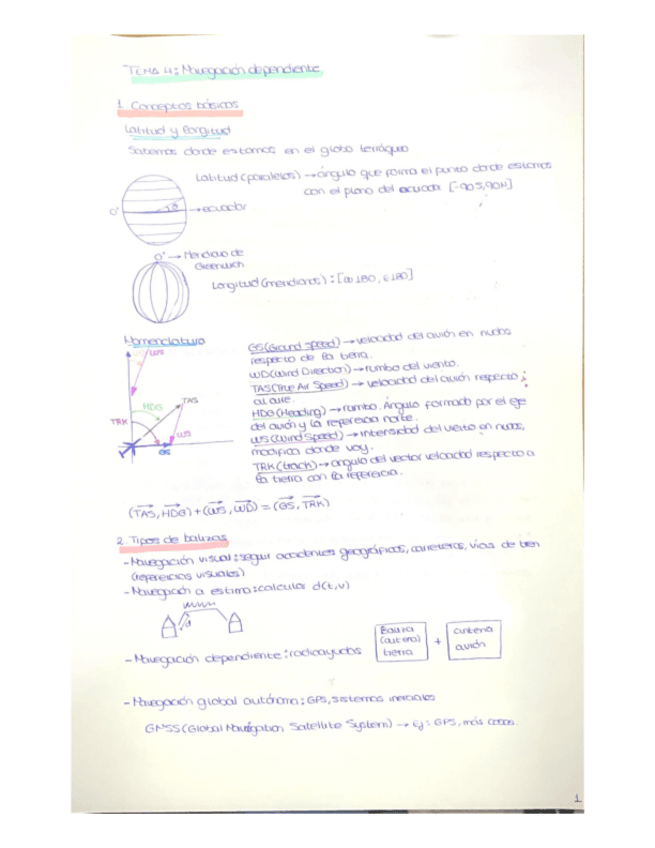 TEMA 4: Navegación dependiente
1. Conceptos básicos
Latitud y longitud
Sabemos donde estamos en el globo terráqueo
Latitud (paralelos) → ángulo que forma el punto donde estamos
con el plano del ecuador [-90S, 90N]
0° → ecuador
0° → Meridiano de
Greenwich
Longitud (meridianos): [W180, E180]
Nomenclatura
GS (Ground Speed) → velocidad del avión en nudos
respecto de la tierra.
WD (Wind Direction) → rumbo del viento.
TAS (True Air Speed) → velocidad del avión respecto
al aire.
HDG (Heading) → rumbo. Ángulo formado por el eje
del avión y la referencia norte.
WS (Wind Speed) → intensidad del viento en nudos,
modifica donde voy.
TRK (track) → angulo del vector velocidad respecto a
la tierra con la referencia.
WS
HDG
TAS
TRK
WS
GS
(TAS, HDG) + (WS, WD) = (GS, TRK)
2. Tipos de balizas
- Navegación visual: seguir accidentes geográficos, carreteras, vías de tren
(referencias visuales)
- Navegación a estima: calcular d(t,v)
d
- Navegación dependiente: radioayudas
Baliza
(antena)
tierra
+
antena
avión
- Navegación global autónoma: GPS, sistemas inerciales
GNSS (Global Navigation Satellite System) → Ej: GPS, más cosas.
1